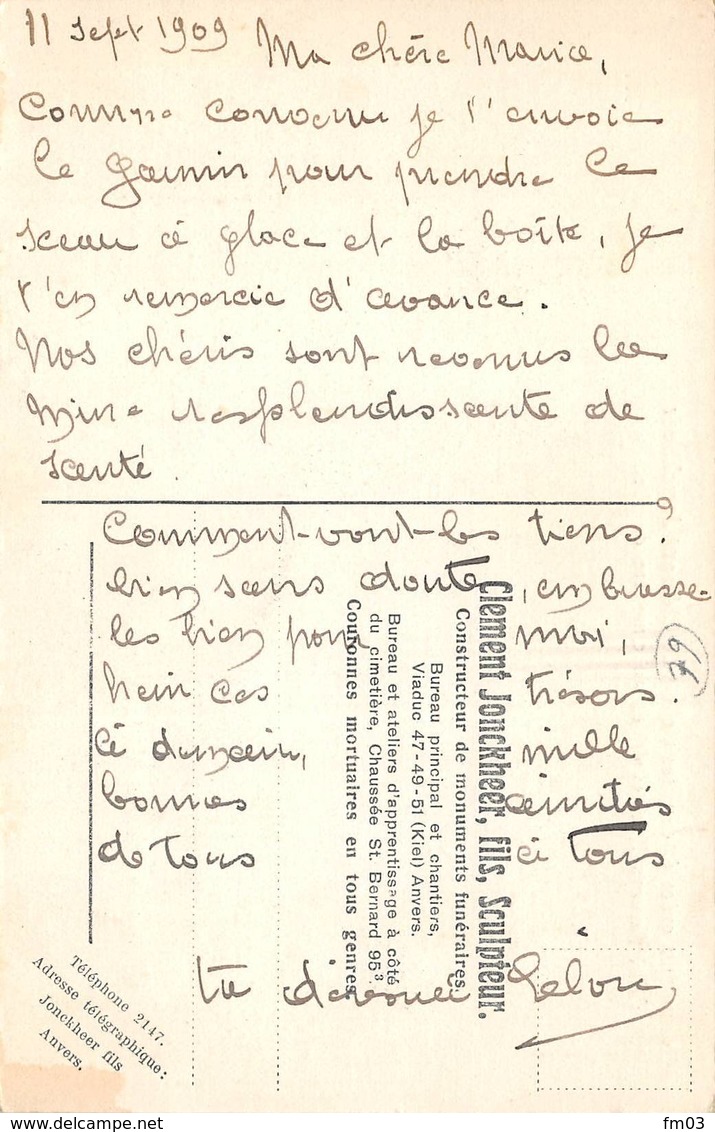 11 Sept 1909 Ma chère Marie,
Comme convenu je t'envoie
le gamin pour prendre le
sceau à glace et la boîte, je
t'en remercie d'avance.
Nos chéris sont revenus la
mine resplendissante de
santé.
Comment vont les tiens?
bien sans doute, embrasse-
les bien pour moi,
hein ces trésors.
à demain, mille
bonnes amitiés
de tous à tous
ta
Clement Jonckheer, fils, sculpteur.
Constructeur de monuments funéraires.
Bureau principal et chantiers,
Viaduc 47-49-51 (Kiel) Anvers.
Bureau et ateliers d'apprentissage à côté
du cimetière, Chaussée St. Bernard 953
Couronnes mortuaires en tous genres
Téléphone 2147.
Adresse télégraphique:
Jonckheer fils
Anvers.
79
delcampe.net
fm03